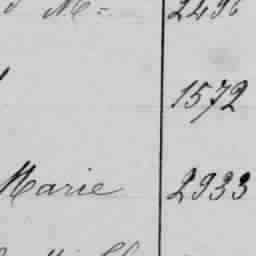 2496
1572
Marie 2933